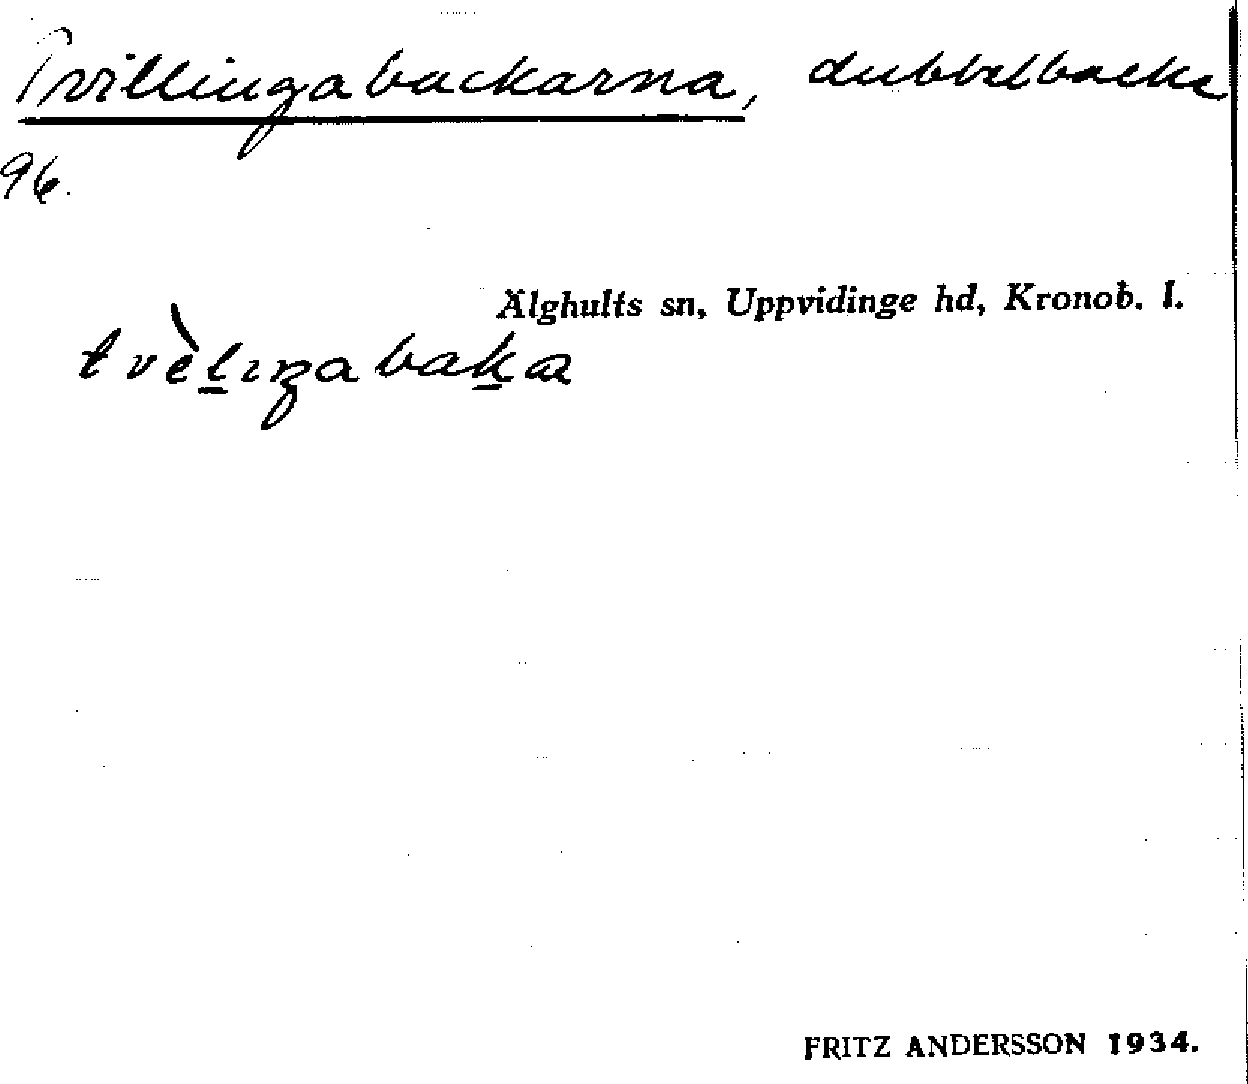 Tvillingabackarna, dubbelbacke
96.
Älghults sn, Uppvidinge hd, Kronob. l.
tvèlıŋabakar
FRITZ ANDERSSON 1934.